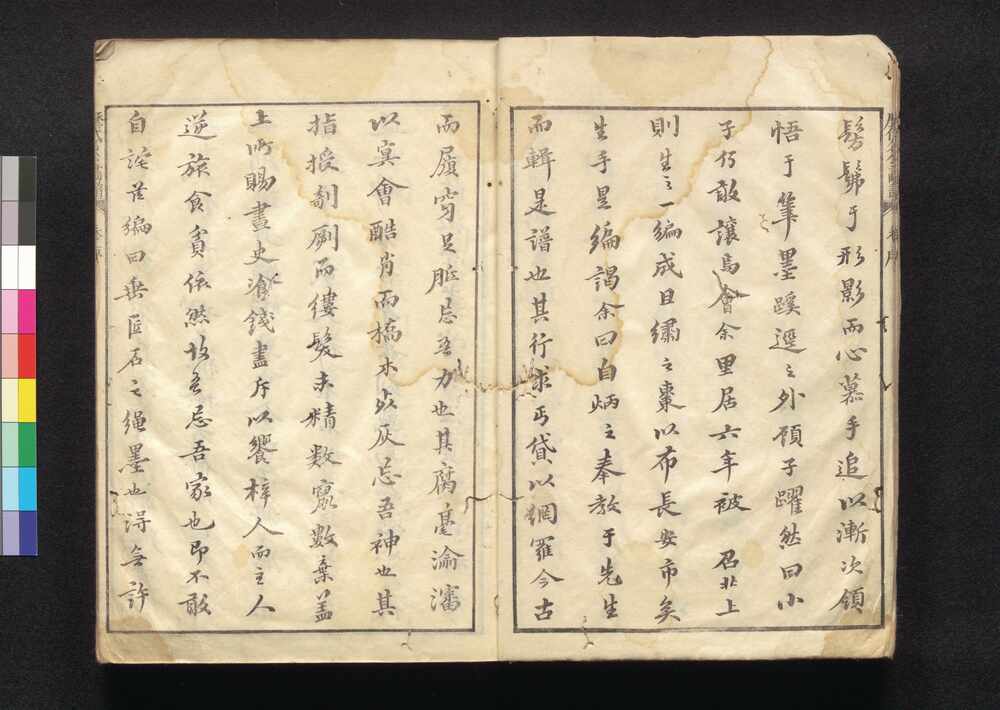 髣髴于形影而心慕手追以漸次領
悟于筆墨蹊逕之外顧子躍然曰小
子何敢讓焉會余里居六年被 召北上
則生之一編成且繡之棗以布長安市矣
生手是編謁余曰自炳之奉教于先生
而輯是譜也其行求丐貸以網羅今古
而屩穿足脈忘吾力也其腐毫瀹瀋
以冥會酷肖而槁木死灰忘吾神也其
指授剞劂而縷髮未精數窺數棄蓋
上所賜畫史飡錢盡斥以饗梓人而主人
逆旅食貧依然故吾忘吾家也即不敢
自詫茲編曰垂匠石之繩墨也得無許